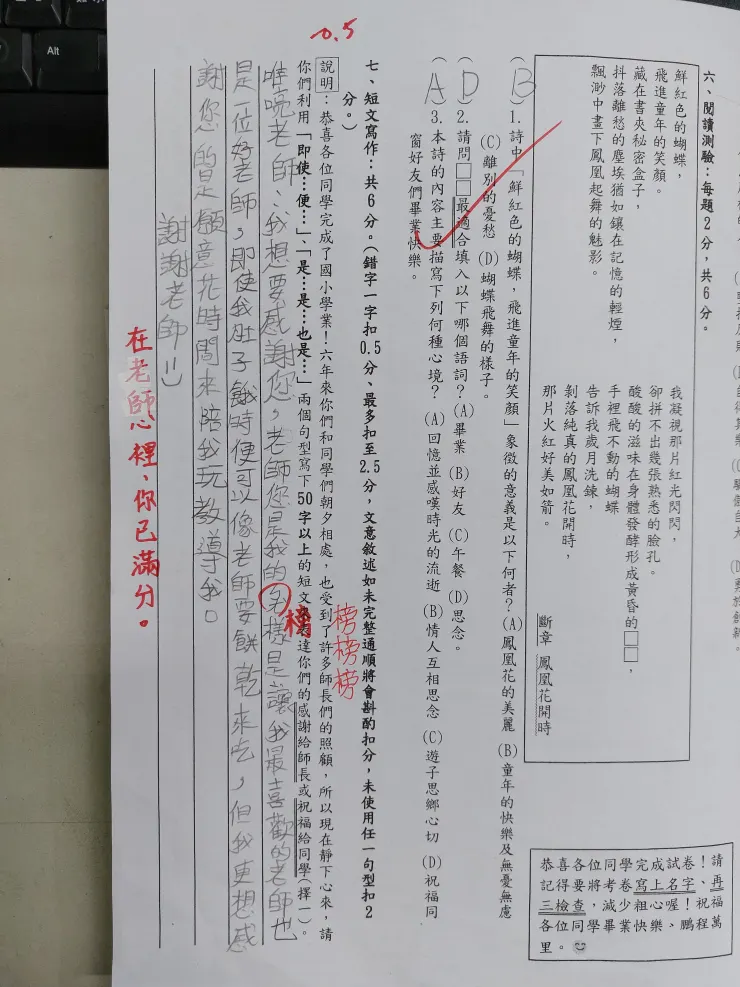 六、閱讀測驗：每題2分，共6分。
鮮紅色的蝴蝶，
飛進童年的笑顏。
藏在書夾秘密盒子，
抖落離愁的塵埃猶如鑲在記憶的輕煙，
飄渺中畫下鳳凰起舞的魅影。
我凝視那片紅光閃閃，
卻拼不出幾張熟悉的臉孔。
酸酸的滋味在身體發酵形成黃昏的□□，
手裡飛不動的蝴蝶
告訴我歲月洗鍊，
剝落純真的鳳凰花開時，
那片火紅好美如箭。
斷章 鳳凰花開時
(B) 1. 詩中「鮮紅色的蝴蝶，飛進童年的笑顏」象徵的意義是以下何者？(A) 鳳凰花的美麗 (B) 童年的快樂及無憂無慮
(C) 離別的憂愁 (D) 蝴蝶飛舞的樣子。
(D) 2. 請問□□最適合填入以下哪個語詞？(A) 畢業 (B) 好友 (C) 午餐 (D) 思念。
(A) 3. 本詩的內容主要描寫下列何種心境？(A) 回憶並感嘆時光的流逝 (B) 情人互相思念 (C) 遊子思鄉心切 (D) 祝福同
窗好友們畢業快樂。
七、短文寫作：共6分。(錯字一字扣0.5分、最多扣至2.5分，文意敘述如未完整通順將會斟酌扣分，未使用任一句型扣2
分。)
-0.5
說明：恭喜各位同學完成了國小學業！六年來你們和同學們朝夕相處，也受到了許多師長們的照顧，所以現在靜下心來，請
你們利用「即使…便…」、「是…是…也是…」兩個句型寫下50字以上的短文表達你們的感謝給師長或祝福給同學(擇一)。
老師：我想要感謝您，老師您是我的樣是讓我最喜歡的老師也
榜
榜榜榜
是一位好老師，即使我肚子餓時便可以像老師要餅乾來吃，但我更想感
謝您的是願意花時間來陪我玩教導我。
謝謝老師=)
在老師心裡、你已滿分。
恭喜各位同學完成試卷！請
記得要考卷寫上名字、再
三檢查將減少粗心喔！祝福
各位同學畢業快樂、鵬程萬
里。
Alt